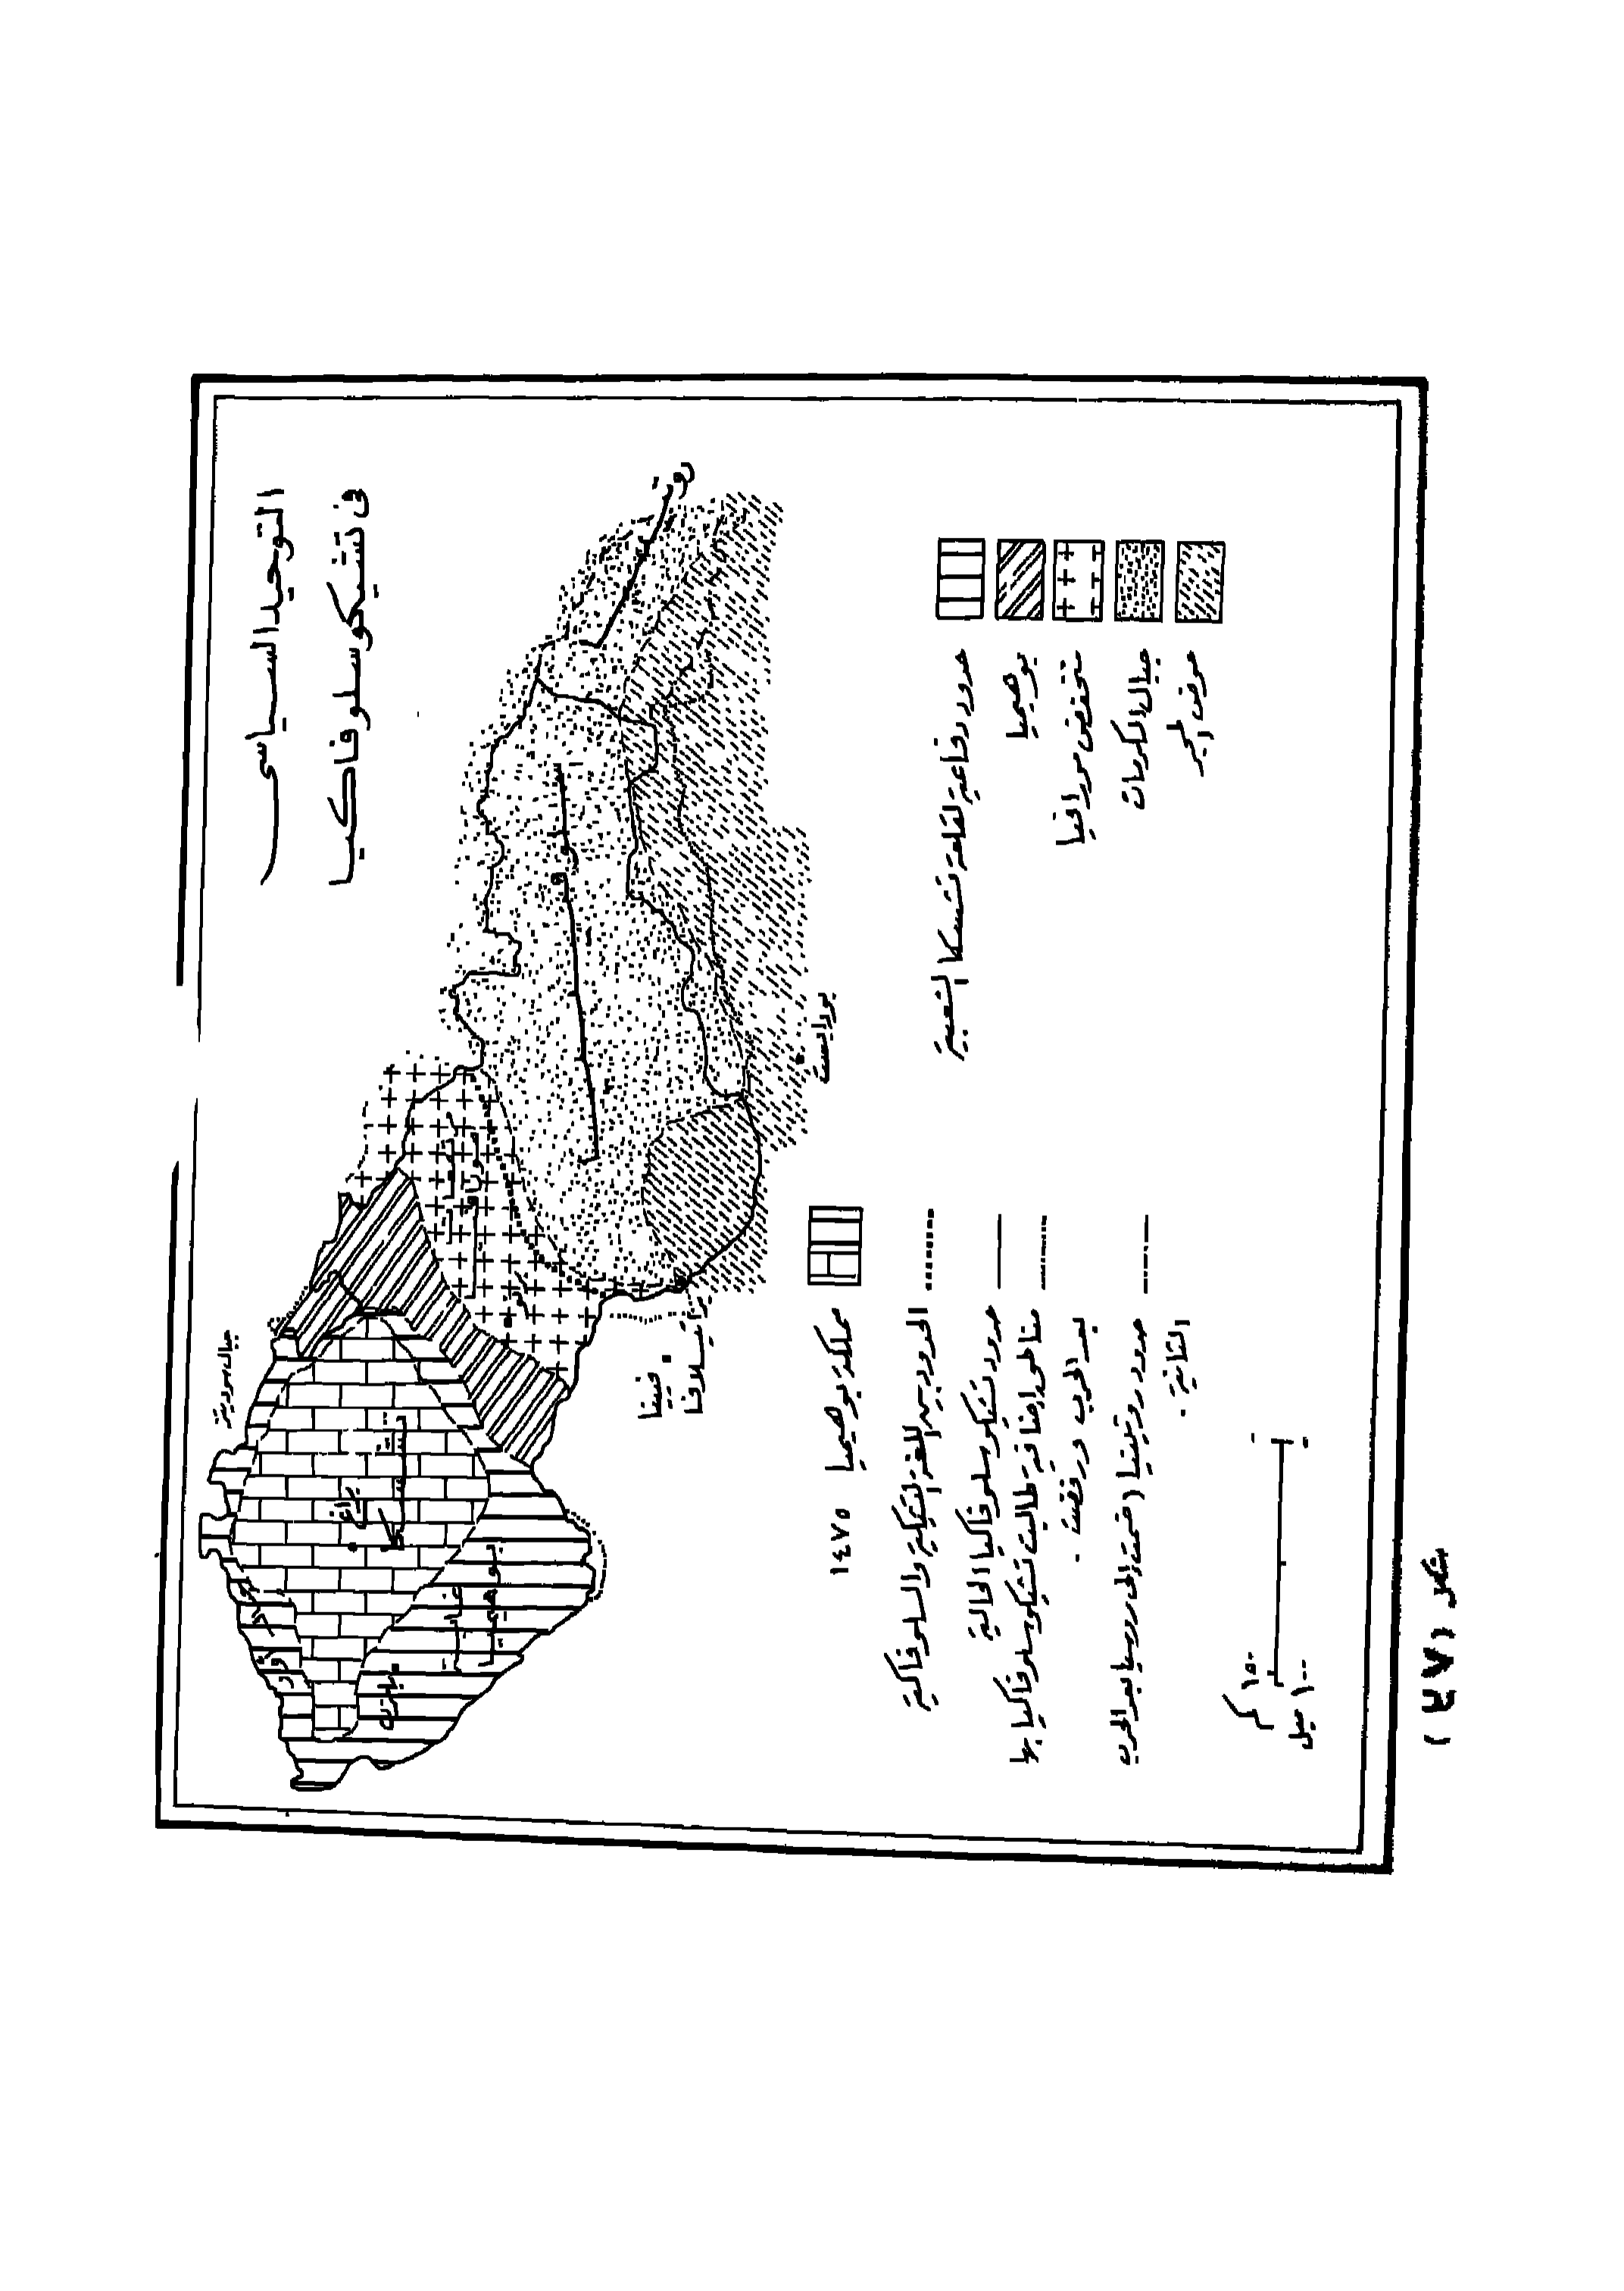 التوحيد السياسى
فى تشيكوسلوفاكيا
جبال سوديت
براغ
فيينا
براتيسلافا
بودابست
مملكة بوهيميا ١٤٧٥
الحدود بين اللغة التشيكية والسلوفاكية
حدود تشيكوسلوفاكيا الحالية
مناطق إضافية طالبت تشيكوسلوفاكيا بها
بعد الحرب ورفضت .
حدود روتينيا ( ضمت إلى روسيا بعد الحرب
الثانية .
حدود دفاعية لقلعة تشيكيا الشعبية
بوهيميا
منخفض مورافيا
جبال الكربات
حوض المجر
١٥٠ كم
١٠٠ ميل
شكل (٢٧)